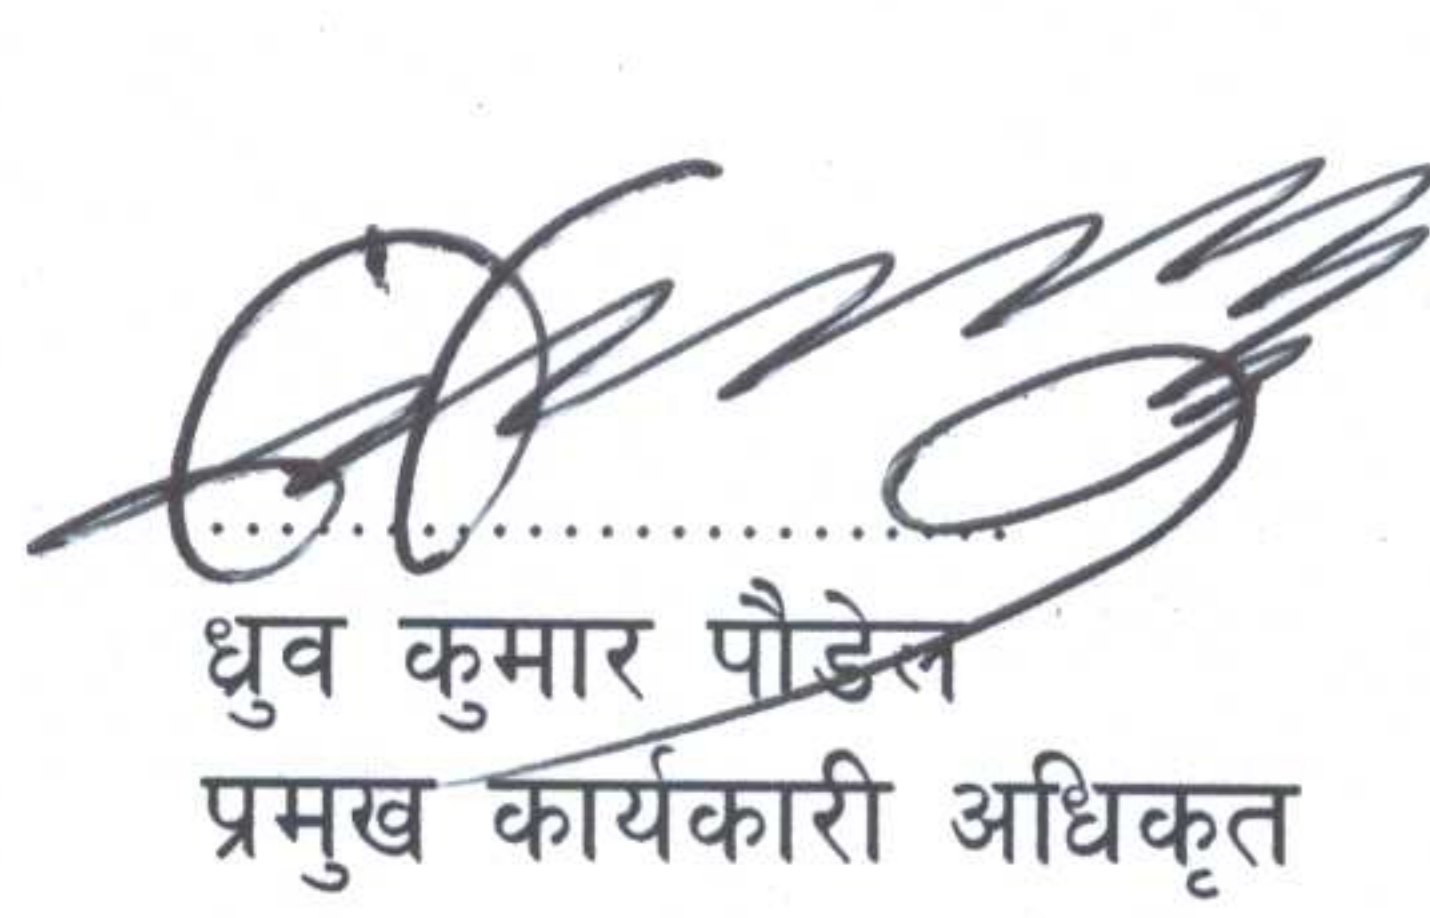 ध्रुव कुमार पौडेल
प्रमुख कार्यकारी अधिकृत